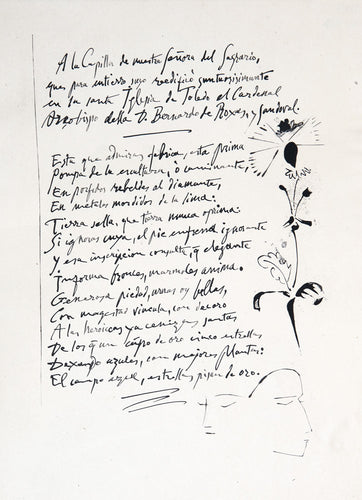 A la Capilla de nuestra Señora del Sagrario,
que para entierro suyo reedificó suntuosisimamente
en la santa Iglesia de Toledo el Cardenal
Arzobispo della D. Bernardo de Roxas y Sandoval.
Esta que admiras fabrica, esta prima
Pompa de la escultura, ó caminante,
En porfidos rebeldes al diamante,
En metales mordidos de la lima:
Tierra sella, que tierra nunca oprima:
Si ignoras cuya, el pie enfrena ignorante
Y esa inscripcion consulta, q̃ elegante
Informa bronces, marmoles anima.
Generosa piedad, urnas oy bellas,
Con magestad vincula, con decoro
A las heroicas ya cenizas santas
De los q̃ un campo de oro cinco estrellas
Dexando azules, con mejores plantas:
El campo azul, estrellas pisan de oro.